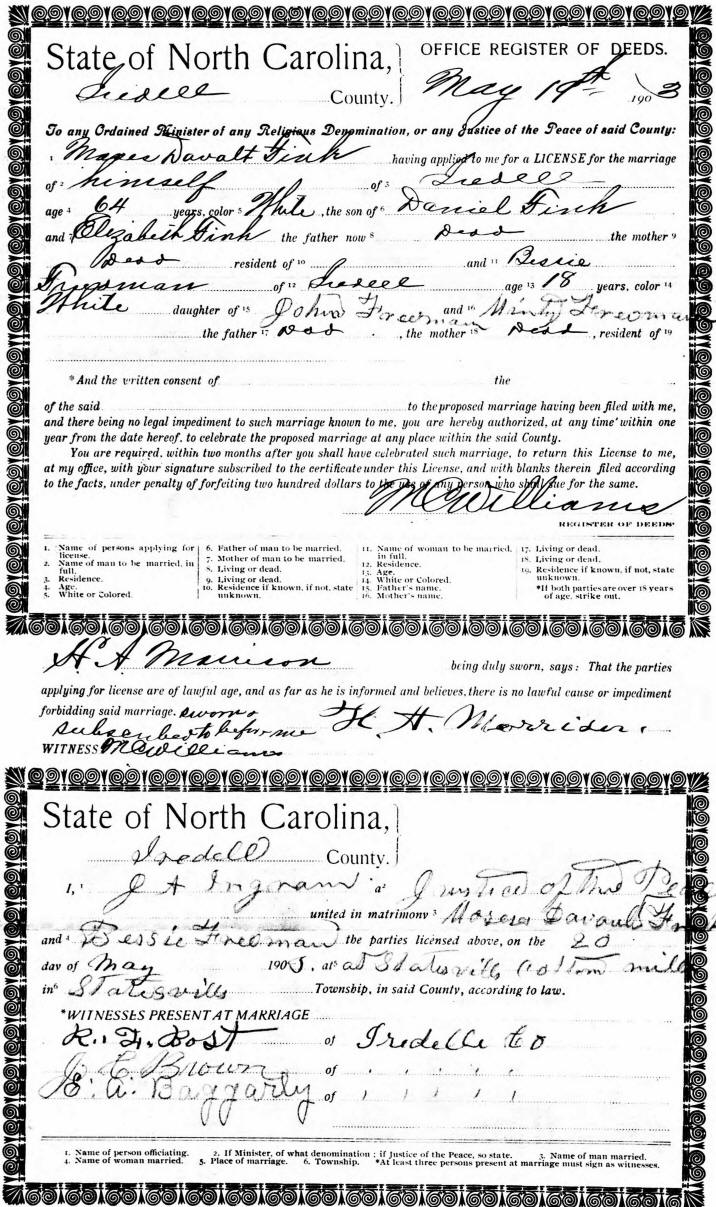 State of North Carolina, OFFICE REGISTER OF DEEDS.
Iredell County. May 19th 1903
To any Ordained Minister of any Religious Denomination, or any Justice of the Peace of said County:
1 Moses Davalt Fink having applied to me for a LICENSE for the marriage
of 2 himself of 3 Iredell
age 4 64 years, color 5 White, the son of 6 Daniel Fink
and 7 Elizabeth Fink the father now 8 Dead the mother 9
Dead resident of 10 and 11 Bessie
Freeman of 12 Iredell age 13 18 years, color 14
White daughter of 15 John Freeman and 16 Minty Freeman
the father 17 Dead, the mother 18 Dead, resident of 19
*And the written consent of the
of the said to the proposed marriage having been filed with me,
and there being no legal impediment to such marriage known to me, you are hereby authorized, at any time within one
year from the date hereof, to celebrate the proposed marriage at any place within the said County.
You are required, within two months after you shall have celebrated such marriage, to return this License to me,
at my office, with your signature subscribed to the certificate under this License, and with blanks therein filed according
to the facts, under penalty of forfeiting two hundred dollars to the use of any person who shall sue for the same.
M C Williams
REGISTER OF DEEDS
1. Name of persons applying for license.
2. Name of man to be married, in full.
3. Residence.
4. Age.
5. White or Colored.
6. Father of man to be married.
7. Mother of man to be married.
8. Living or dead.
9. Living or dead.
10. Residence if known, if not, state unknown.
11. Name of woman to be married, in full.
12. Residence.
13. Age.
14. White or Colored.
15. Father's name.
16. Mother's name.
17. Living or dead.
18. Living or dead.
19. Residence if known, if not, state unknown.
*If both parties are over 18 years of age, strike out.
H A Morrison being duly sworn, says: That the parties
applying for license are of lawful age, and as far as he is informed and believes, there is no lawful cause or impediment
forbidding said marriage. Sworn & H. A. Morrison.
subscribed to before me
WITNESS M C Williams
State of North Carolina,
Iredell County.
I, 1 J A Ingram a 2 Justice of the Peace
united in matrimony 3 Moses Davault Fink
and 4 Bessie Freeman the parties licensed above, on the 20
day of May 1903, at 5 at Statesville Cotton mill
in 6 Statesville Township, in said County, according to law.
*WITNESSES PRESENT AT MARRIAGE
R. F. Bost of Iredell Co
J C Brown of " " " "
E. A. Baggarly of " " " "
1. Name of person officiating. 2. If Minister, of what denomination; if Justice of the Peace, so state. 3. Name of man married.
4. Name of woman married. 5. Place of marriage. 6. Township. *At least three persons present at marriage must sign as witnesses.